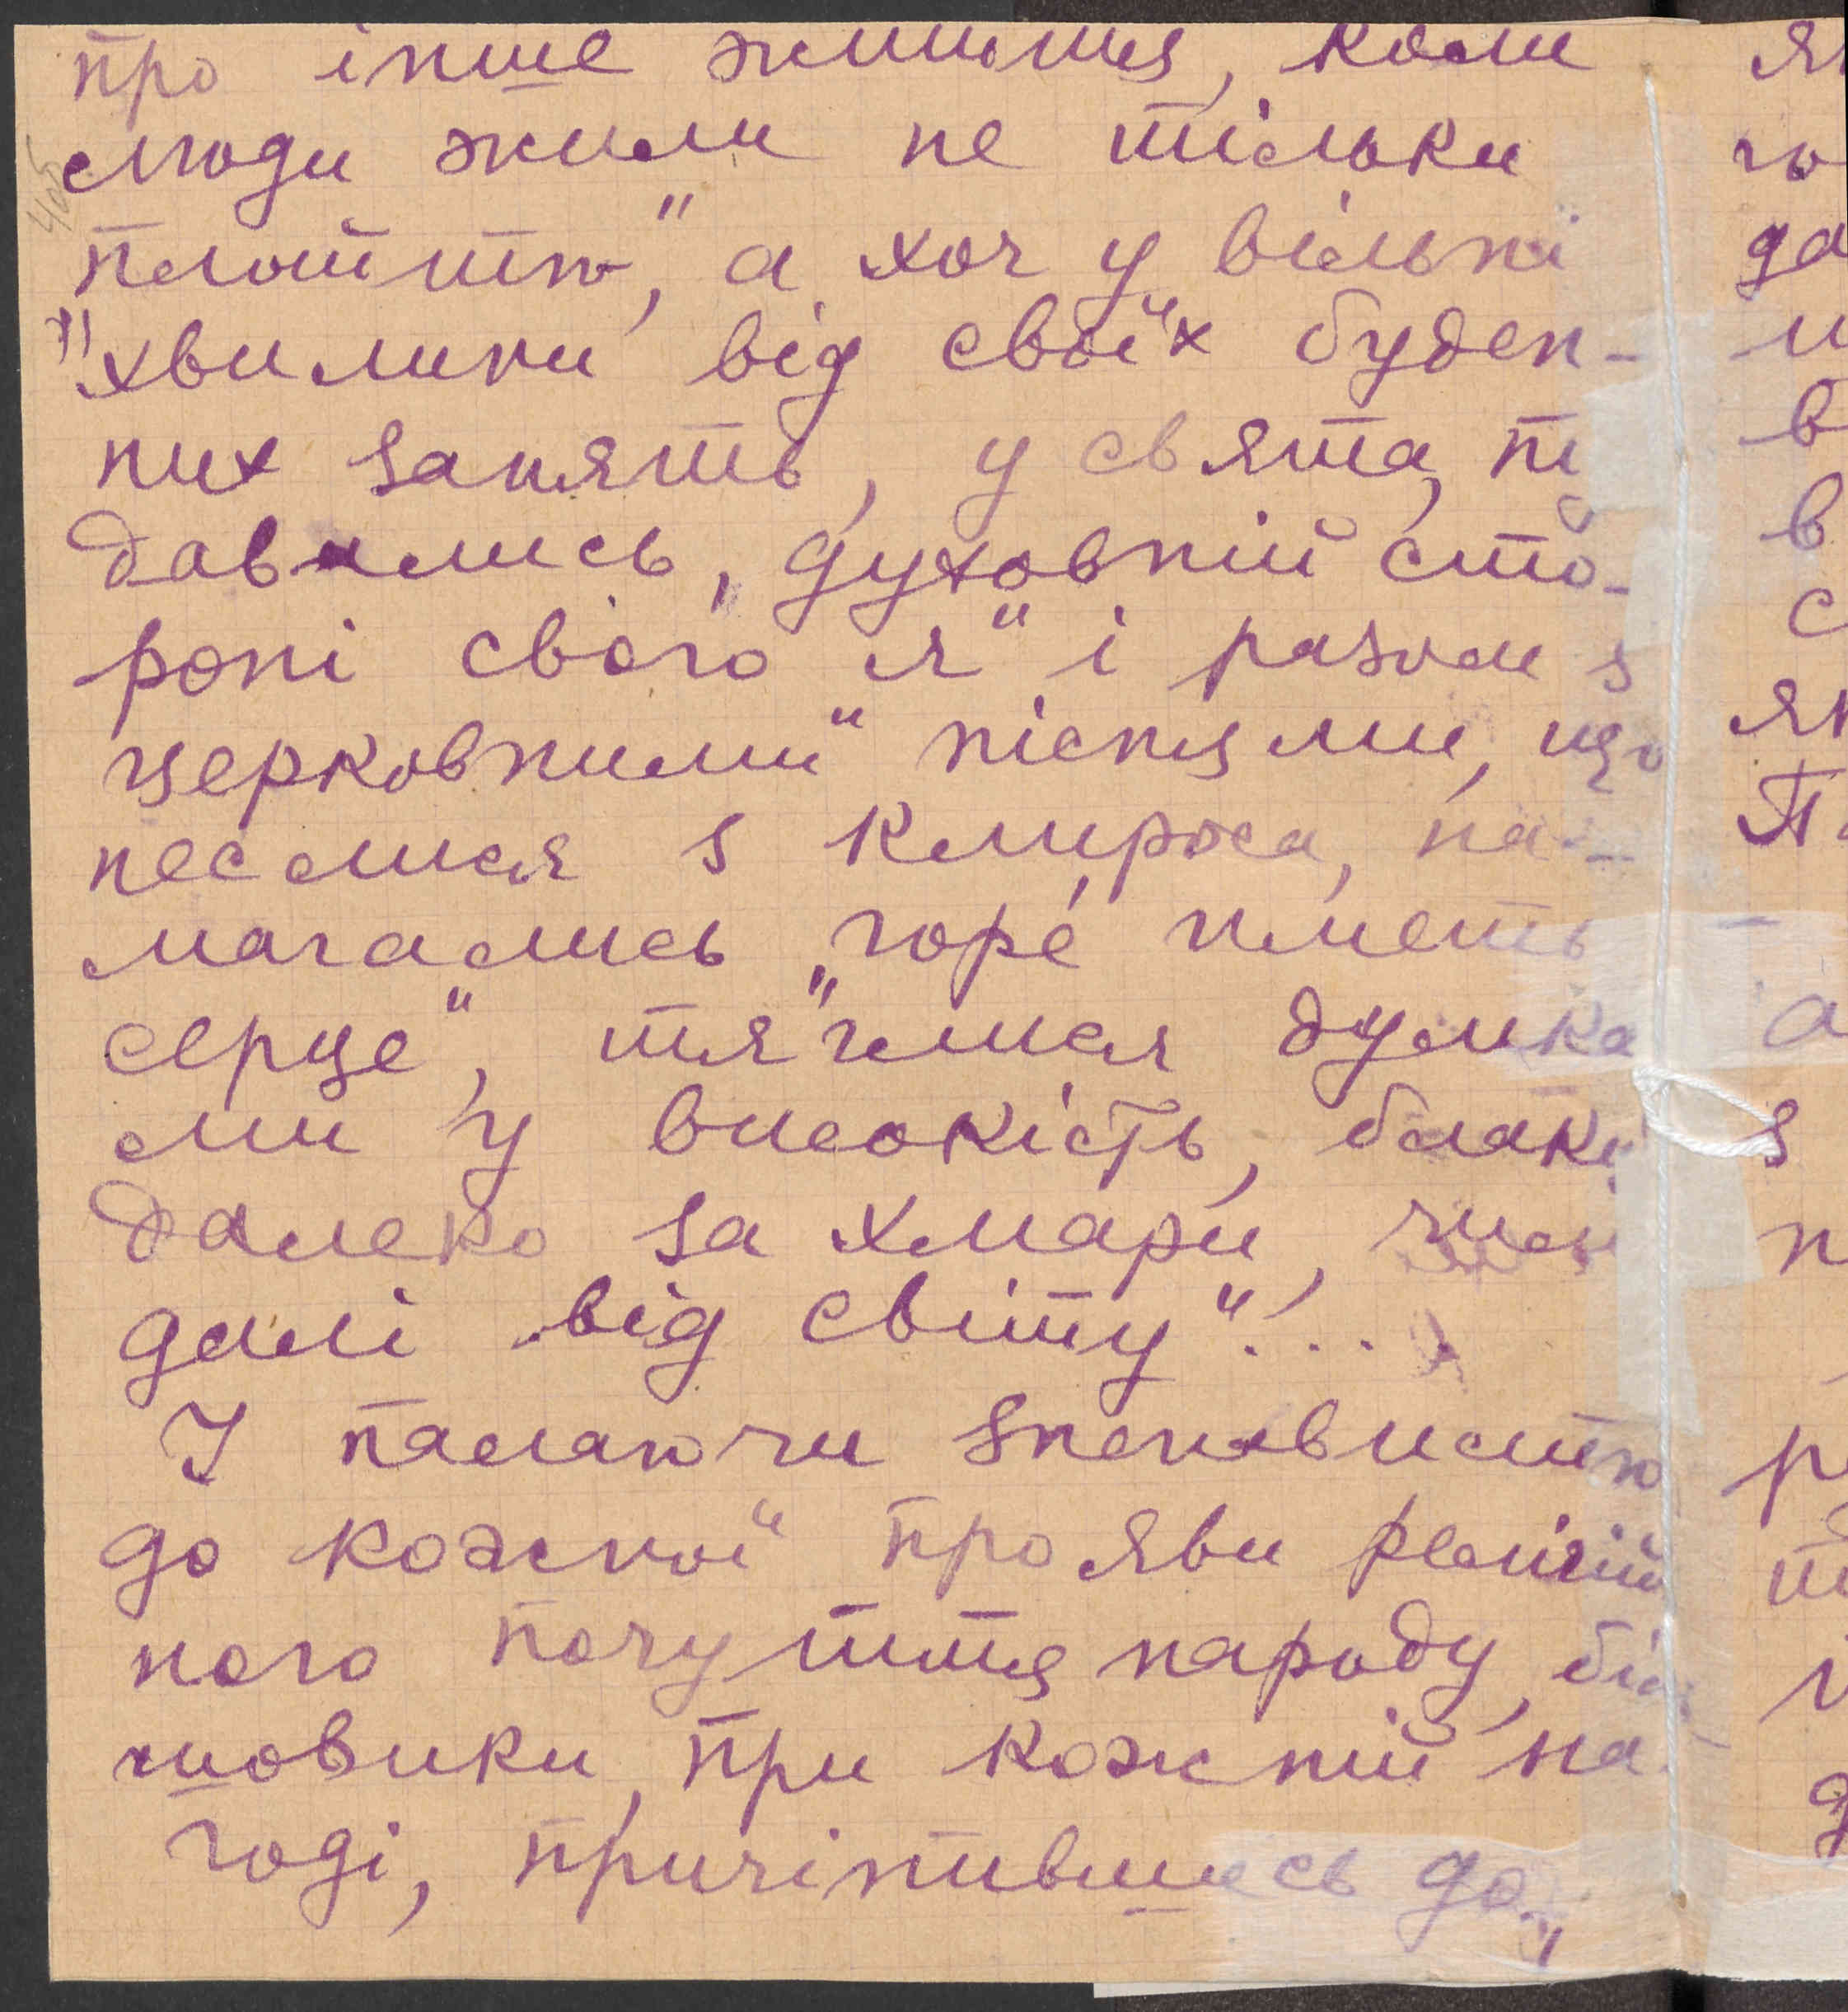 про інше життя, коли
люди жили не тільки
„плоттю", а хоч у вільні
хвилини від своїх буден-
них занять, у свята, від
давались „духовній сто-
роні свого я" і разом з
церковними піснями, що
неслися з клироса, на-
магались „горé иметь
серце", тяглися думка
ми у високість, блаки
далеко за хмари, „чим
далі від світу"!..
І палаючи зненавистю
до кожної прояви релігій
ного почуття народу, біль
шовики, при кожній на-
годі, причіпившись до „